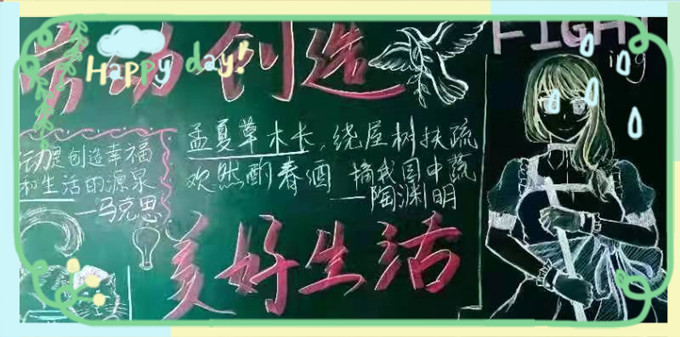 劳动创造
FIGHT
ing
Happy day!
孟夏草木长，绕屋树扶疏
欢然酌春酒 摘我园中蔬
——陶渊明
劳动是创造幸福
和生活的源泉
——马克思
美好生活